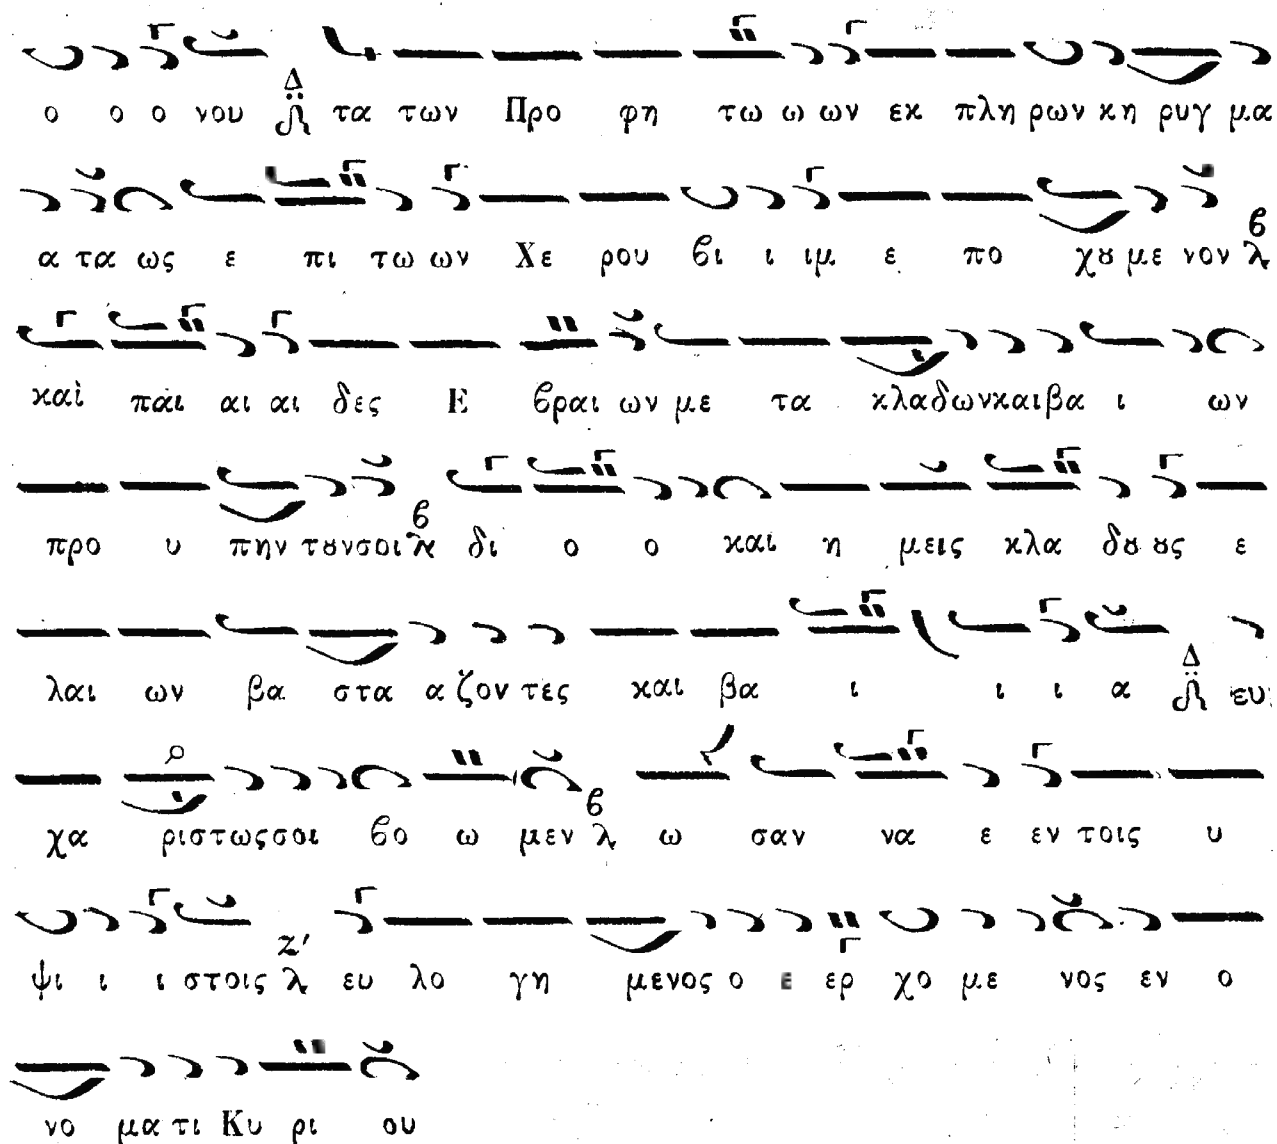 ο ο ο νου Δ τα των Προ φη τω ω ων εκ πλη ρων κη ρυγ μα
α τα ως ε πι τω ων Χε ρου βι ι ιμ ε πο χȣ με νον ϐ λ
καὶ παι αι αι δες Ε ϐραι ων με τα κλαδωνκαιβα ι ων
προ υ πην τȣνσοι ϐ λ δι ο ο και η μεις κλα δȣ ȣς ε
λαι ων βα στα α ζον τες και βα ι ι ι α Δ ευ
χα ριστωςσοι ϐο ω μεν ϐ λ ω σαν να ε εν τοις υ
ψι ι ι στοις Ζ′ λ ευ λο γη μενος ο ε ερ χο με νος εν ο
νο μα τι Κυ ρι ου